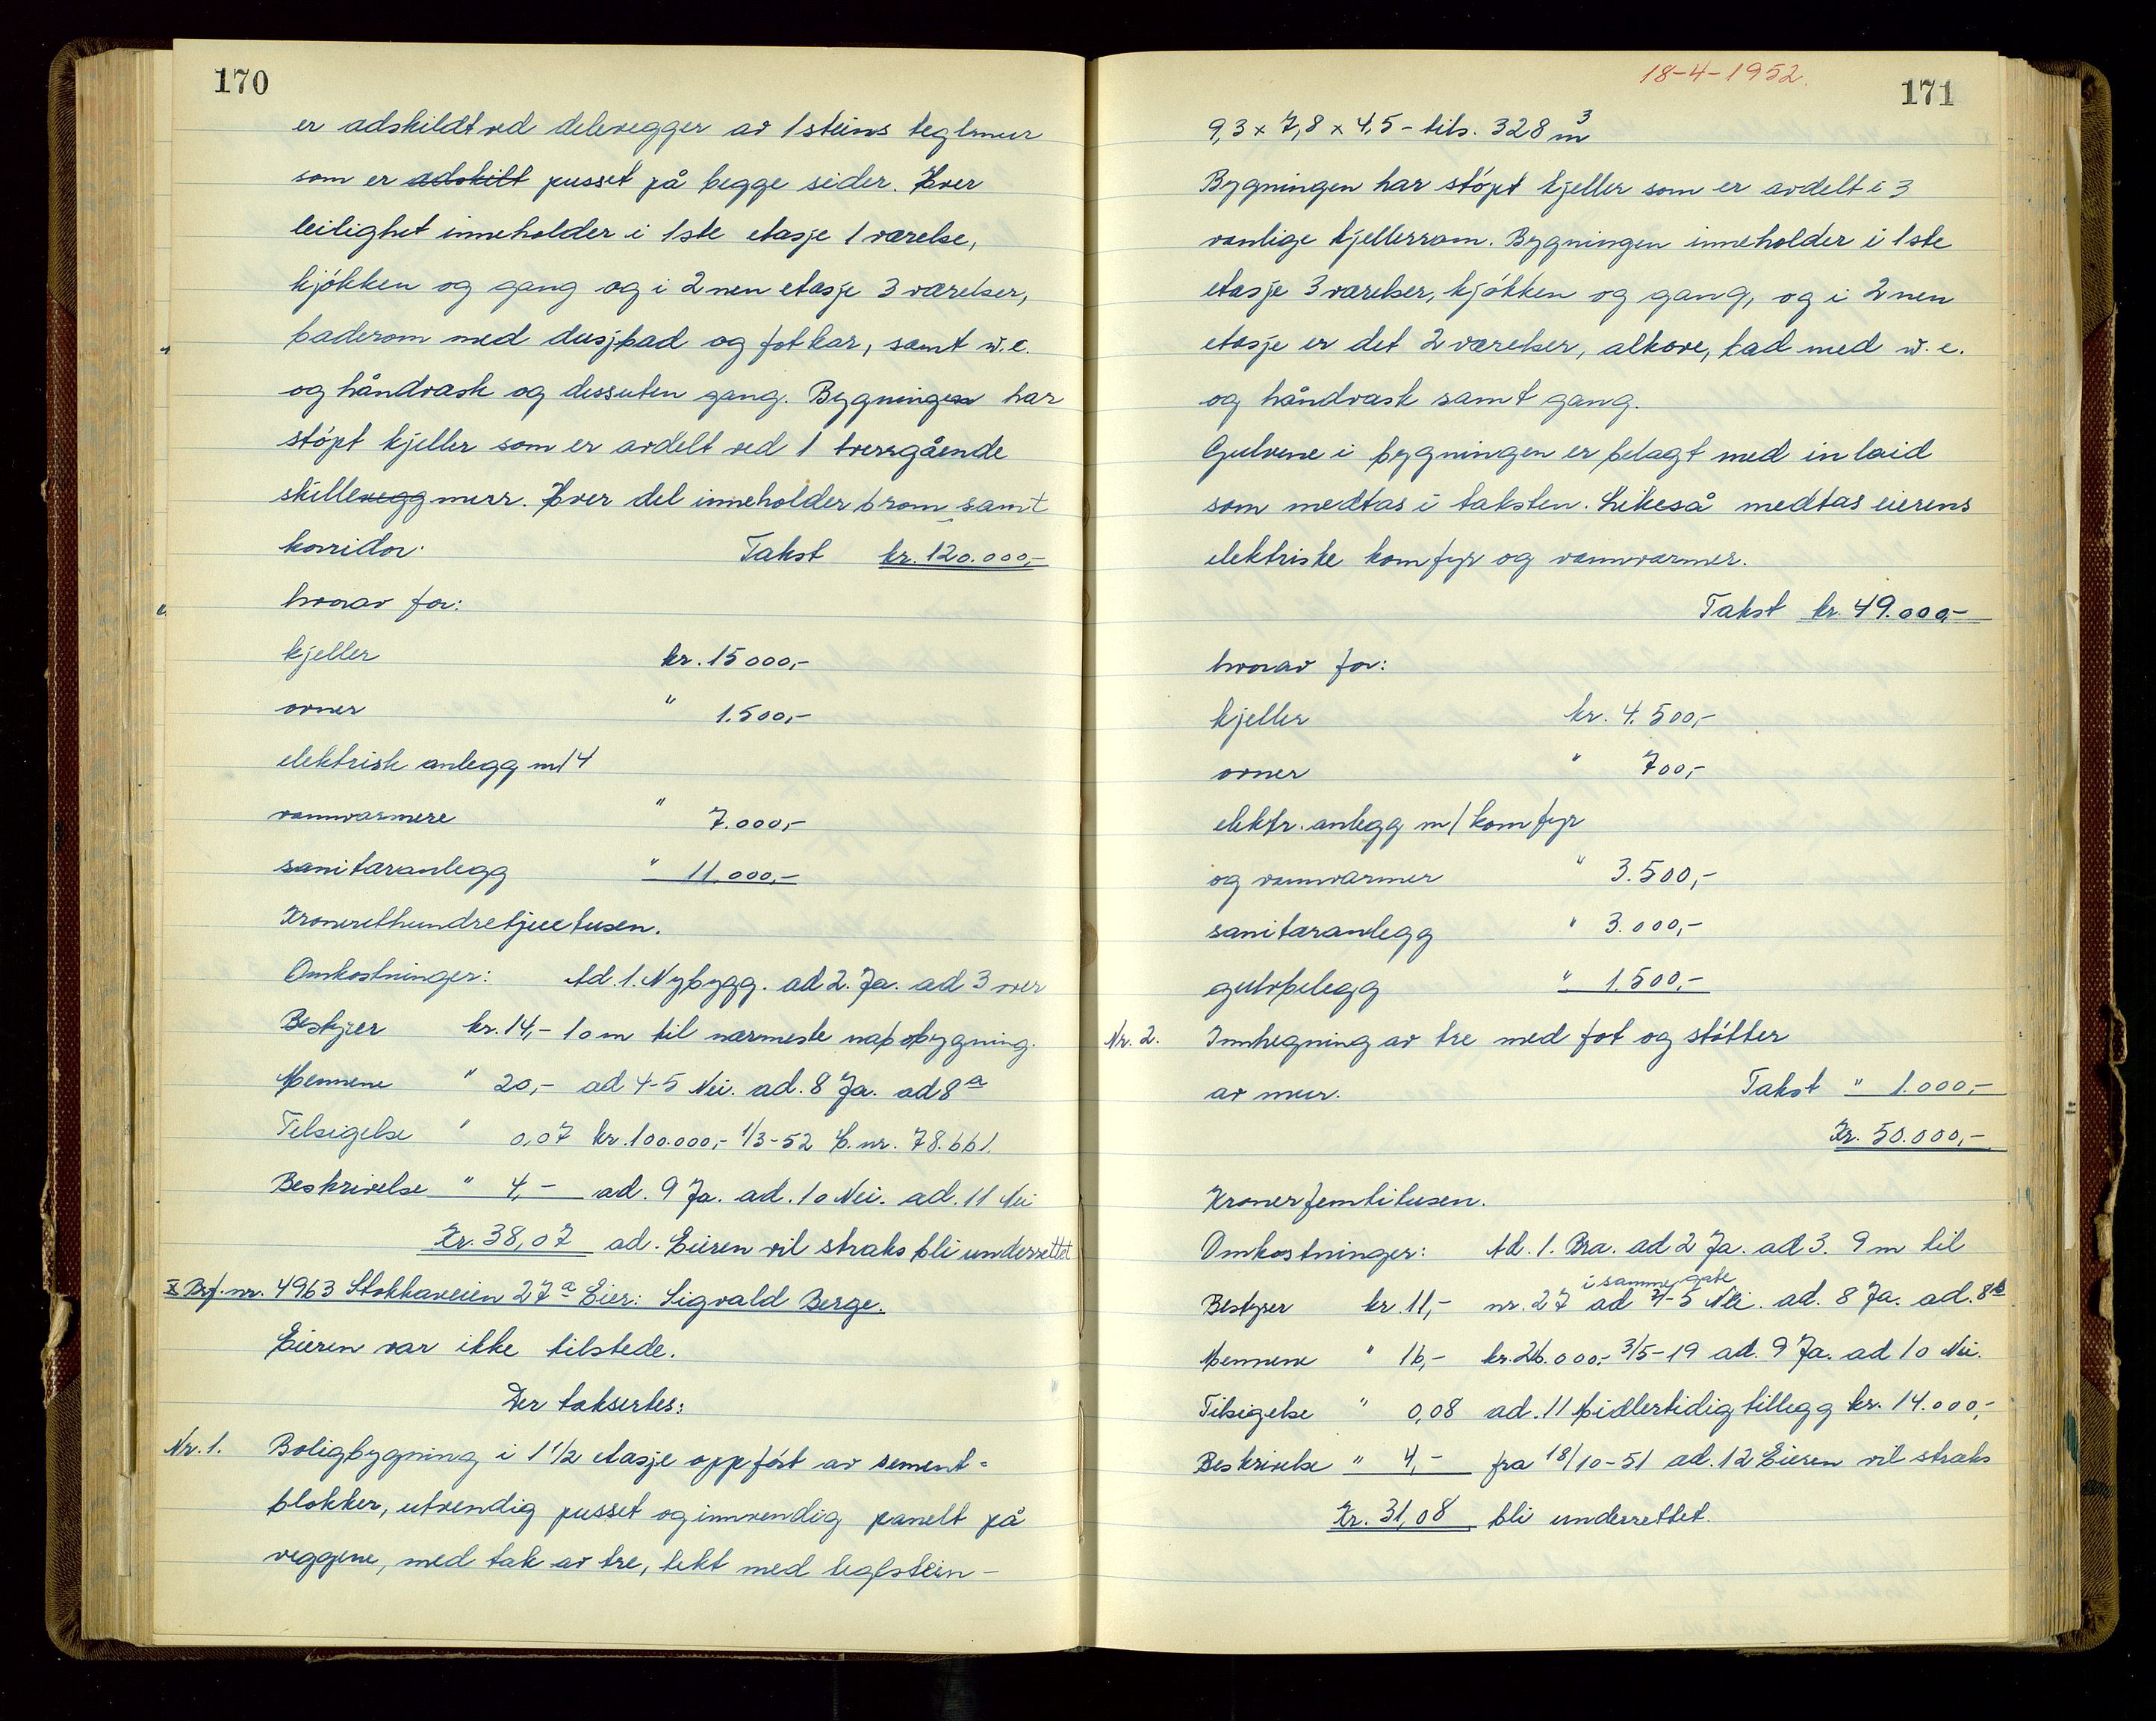 170
er adskildt ved delevegger av 1 steins teglmur
som er adskilt pusset på begge sider. Hver
leilighet inneholder i 1ste etasje 1 værelse,
kjøkken og gang og i 2nen etasje 3 værelser,
baderom med dusjbad og fotkar, samt w.c.
og håndvask og dessuten gang. Bygningen har
støpt kjeller som er avdelt ved 1 tverrgående
skillevegg murr. Hver del inneholder 6 rom samt
korridor. Takst kr. 120.000,-
hvorav for:
kjeller kr. 15000,-
ovner " 1.500,-
elektrisk anlegg m/4
vannvarmere " 7.000,-
sanitæranlegg " 11.000,-
Kronerethundretjuetusen.
Omkostninger: Ad. 1. Nybygg. ad 2. Ja. ad 3 over
Bestyrer kr. 14,- 10 m til nærmeste nabobygning.
Mennene " 20,- ad 4-5 Nei. ad. 8 Ja. ad 8a
Tilsigelse " 0,07 kr. 100.000,- 1/3-52 B. nr. 78.661.
Beskrivelse " 4,- ad. 9 Ja. ad. 10 Nei. ad. 11 Nei
Kr. 38,07 ad. Eieren vil straks bli underrettet
X Brf. nr. 4963 Stokkaveien 27a Eier: Sigvald Berge.
Eieren var ikke tilstede.
Der taksertes:
Nr. 1. Boligbygning i 1 1/2 etasje oppført av sement-
blokker, utvendig pusset og innvendig panelt på
veggene, med tak av tre, tekt med teglstein-
18-4-1952.
171
9,3 x 7,8 x 4,5 - tils. 328 m3
Bygningen har støpt kjeller som er avdelt i 3
vanlige kjellerrom. Bygningen inneholder i 1ste
etasje 3 værelser, kjøkken og gang, og i 2nen
etasje er det 2 værelser, alkove, bad med w.c.
og håndvask samt gang.
Gulvene i bygningen er belagt med inlaid
som medtas i taksten. Likeså medtas eierens
elektriske komfyr og vannvarmer.
Takst kr. 49.000,-
hvorav for:
kjeller kr. 4.500,-
ovner " 700,-
elektr. anlegg m/komfyr
og vannvarmer " 3.500,-
sanitæranlegg " 3.000,-
gulvbelegg " 1.500,-
Nr. 2. Innhegning av tre med fot og støtter
av mur. Takst " 1.000,-
Kr. 50.000,-
Kronerfemtitusen.
Omkostninger: Ad. 1. Bra. ad 2 Ja. ad 3. 9 m til
i samme gate
Bestyrer kr. 11,- nr. 27 ad 4-5 Nei. ad. 8 Ja. ad. 8b
Mennene " 16,- kr. 26.000,- 3/5-19 ad. 9 Ja. ad 10 Nei.
Tilsigelse " 0,08 ad. 11 Midlertidig tillegg kr. 14.000,-
Beskrivelse " 4,- fra 18/10-51 ad. 12 Eieren vil straks
Kr. 31,08 bli underrettet.